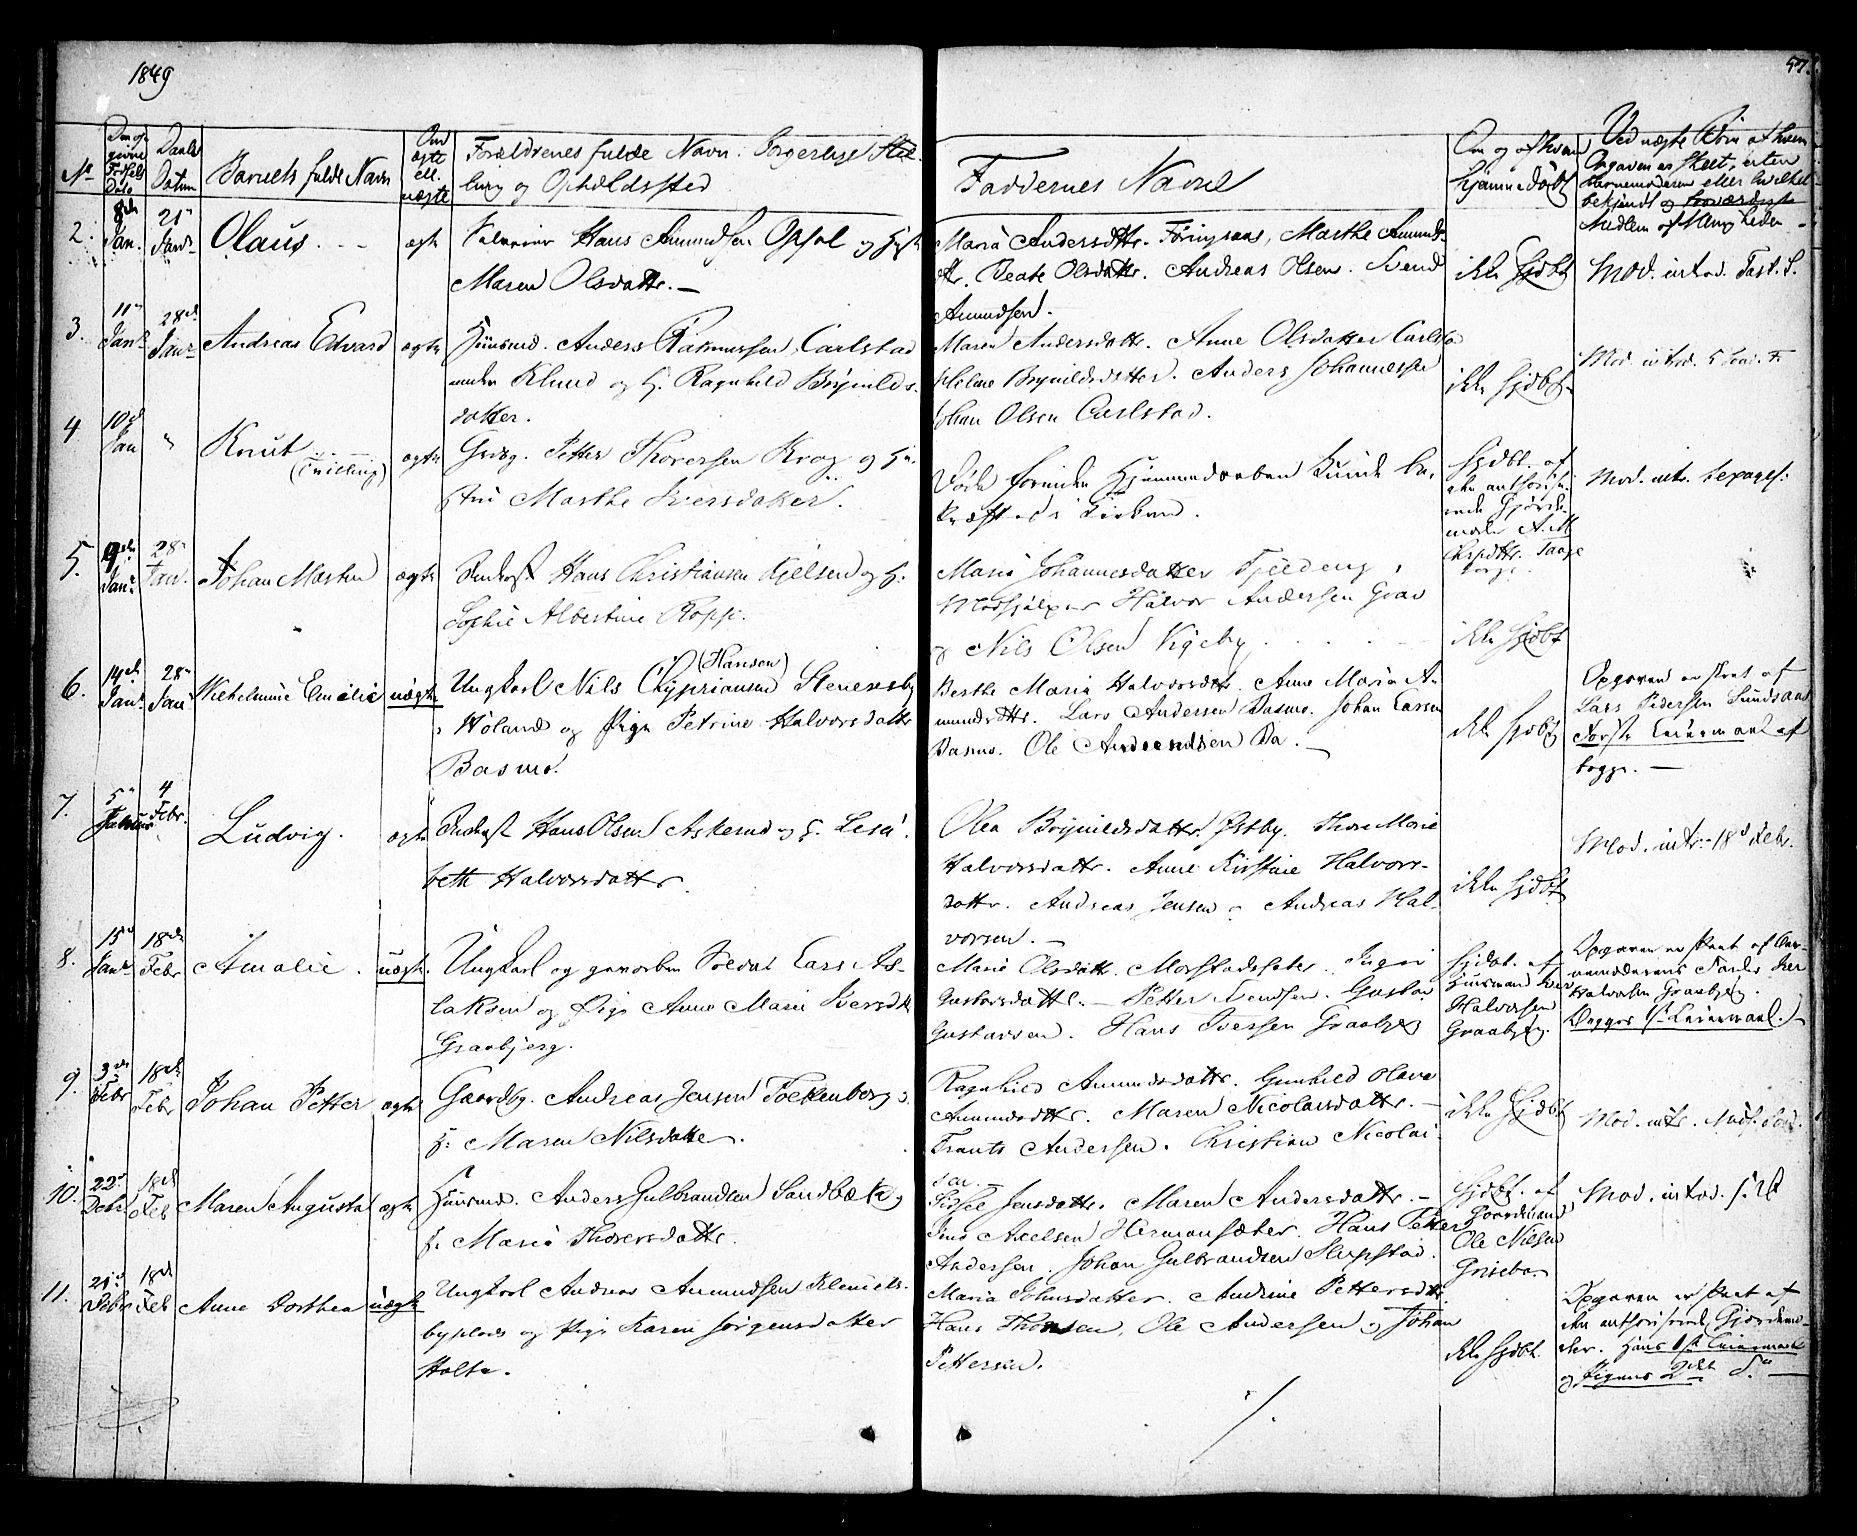 1849
57.
No
Den op-
givne
Fødsels
Dato
Daabs
Datum
Barnets fulde Navn
Om
ægte
ell.
uægte
Forældrenes fulde Navn. Borgerlige Stil-
ling og Opholdssted
Faddernes Navne
Om og af hvem
hjemmedøbt
Ved uægte Børn af hvem
Opgaven er skeet, enten
Barnemoderen eller hvilket
bekjendt og troværdigt
Medlem af Menigheden
2. 8de Jan. 21 Janr. Olaus. ægte Hans Amundsen Opsal og
Maren Olsdattr. —
Maria Andersdttr. Marthe Amunds-
dtr. Beate Olsdattr. Andreas Olsen. Svend
Amundsen.
ikke hjdbt
Mod. introd. Fast. S.
3. 11 Janr. 28de Janr Andreas Edvard ægte Huusmd. Anders Rasmussen Carlstad
under Klund og H. Ragnhild Brynilds-
datter.
Maren Andersdattr. Anne Olsdatter Carlsta
Helene Brynildsdatter. Anders Johannessen
Johan Olsen Carlstad.
ikke hjdbt.
Mod. introd. 5
4 10de Jan " Knut (Tvilling) ægte Grdbg. Petter Thoresen Krog og Hu-
stru Marthe Iversdatter.
Døde forinden Hjemmedaaben kunde be-
kræftes i Kirken.
Hjdbt. af
Gjorde-
moder A. M.
Mod. intr.
5. 9de Janr. 28 Jan. Johan Martin ægte Indegst. Hans Christiansen Kjelsen og H.
Sophie Albertine
Maria Johannesdatter
Halvor Andersen Grav
og Nils Olsen Vigeby.
ikke hjdbt
6. 14de Janr. 28 Janr Wilhelmine Emilie uægte Ungkarl Nils Cyprianssen (Hansen)
i Høland og Pige Petrine Halvorsdattr
Basmo.
Berthe Maria Halvorsdttr. Anne Maria A-
mundsdttr. Lars Andersen Basmo. Johan Larsen
Basmo. Ole Amundsen Do. —
ikke hjdbt
Opgaven er skeet af
Lars Pedersen Sundsaas
Første Leiermaal af
begge. —
7. 5 Februar 4 Febr. Ludvig. ægte Indegst Hans Olsen Askerud og H. Lisa-
beth Halvorsdattr.
Olea Brynildsdattr. Østby. Thore Marie
Halvorsdattr. Anne Kirstine Halvors-
dattr. Andreas Jensen og Andreas Hal-
vorsen. —
ikke hjdbt
Mod. intr. 18d Febr.
8. 15d Janr 18de Febr Amalie. uægte. Ungkarl og geworben Soldat Lars As-
laksen og Pige Anne Marie Iversdtr
Graabjerg.
Marie Olsdattr. Morstadsæter. Inger
Gustavsdattr. — Petter Svendsen. Gustav
Gustavsen. Hans Iversen Graabjerg
Hjdbt. af
Huusmand Iver
Halvorsen
Graabjerg.
Opgaven er skeet af Bar-
nemoderens Fader Iver
Halvorsen Graabjerg.
Begges 1ste Leiermaal. —
9. 3de Febr 18de Febr Johan Petter ægte Gaardbg. Andreas Jensen Fockenborg og
H. Maren Nilsdatter.
Ragnhild Amundsdattr. Gunhild Olava
Amundsdttr. Maren Nicolaisdattr. —
Frants Andersen. Christian Nicolai-
sen. —
ikke hjdbt
Mod. intr.
10. 22de Debr 18de Feb Maren Augusta ægte Huusmd. Anders Gulbrandsen Sandbæk og
H. Maria Thoresdattr.
Sidsel Jensdattr. Maren Andersdattr. —
Axelsen Hermansæter. Hans Petter
Andersen. Johan Gulbrandsen Slupstad.
Hjdbt. af
Gaardmand
Ole Nilsen
Griseboe
Mod. introd.
11. 21de Febr 18de Feb Anne Dorthea uægte Ungkarl Andreas Amundsen Klemets-
byplads og Pige Karen Jørgensdatter
Holte.
Maria Johnsdatter. Andrine Pettersdtr.
Hans Thoresen, Ole Andersen og Johan
Pettersen.
ikke hjdbt.
Opgaven er skeet af
den authoriserede Gjordemo-
der. Hans 1ste Leiermaal
og Pigens 2det Do —